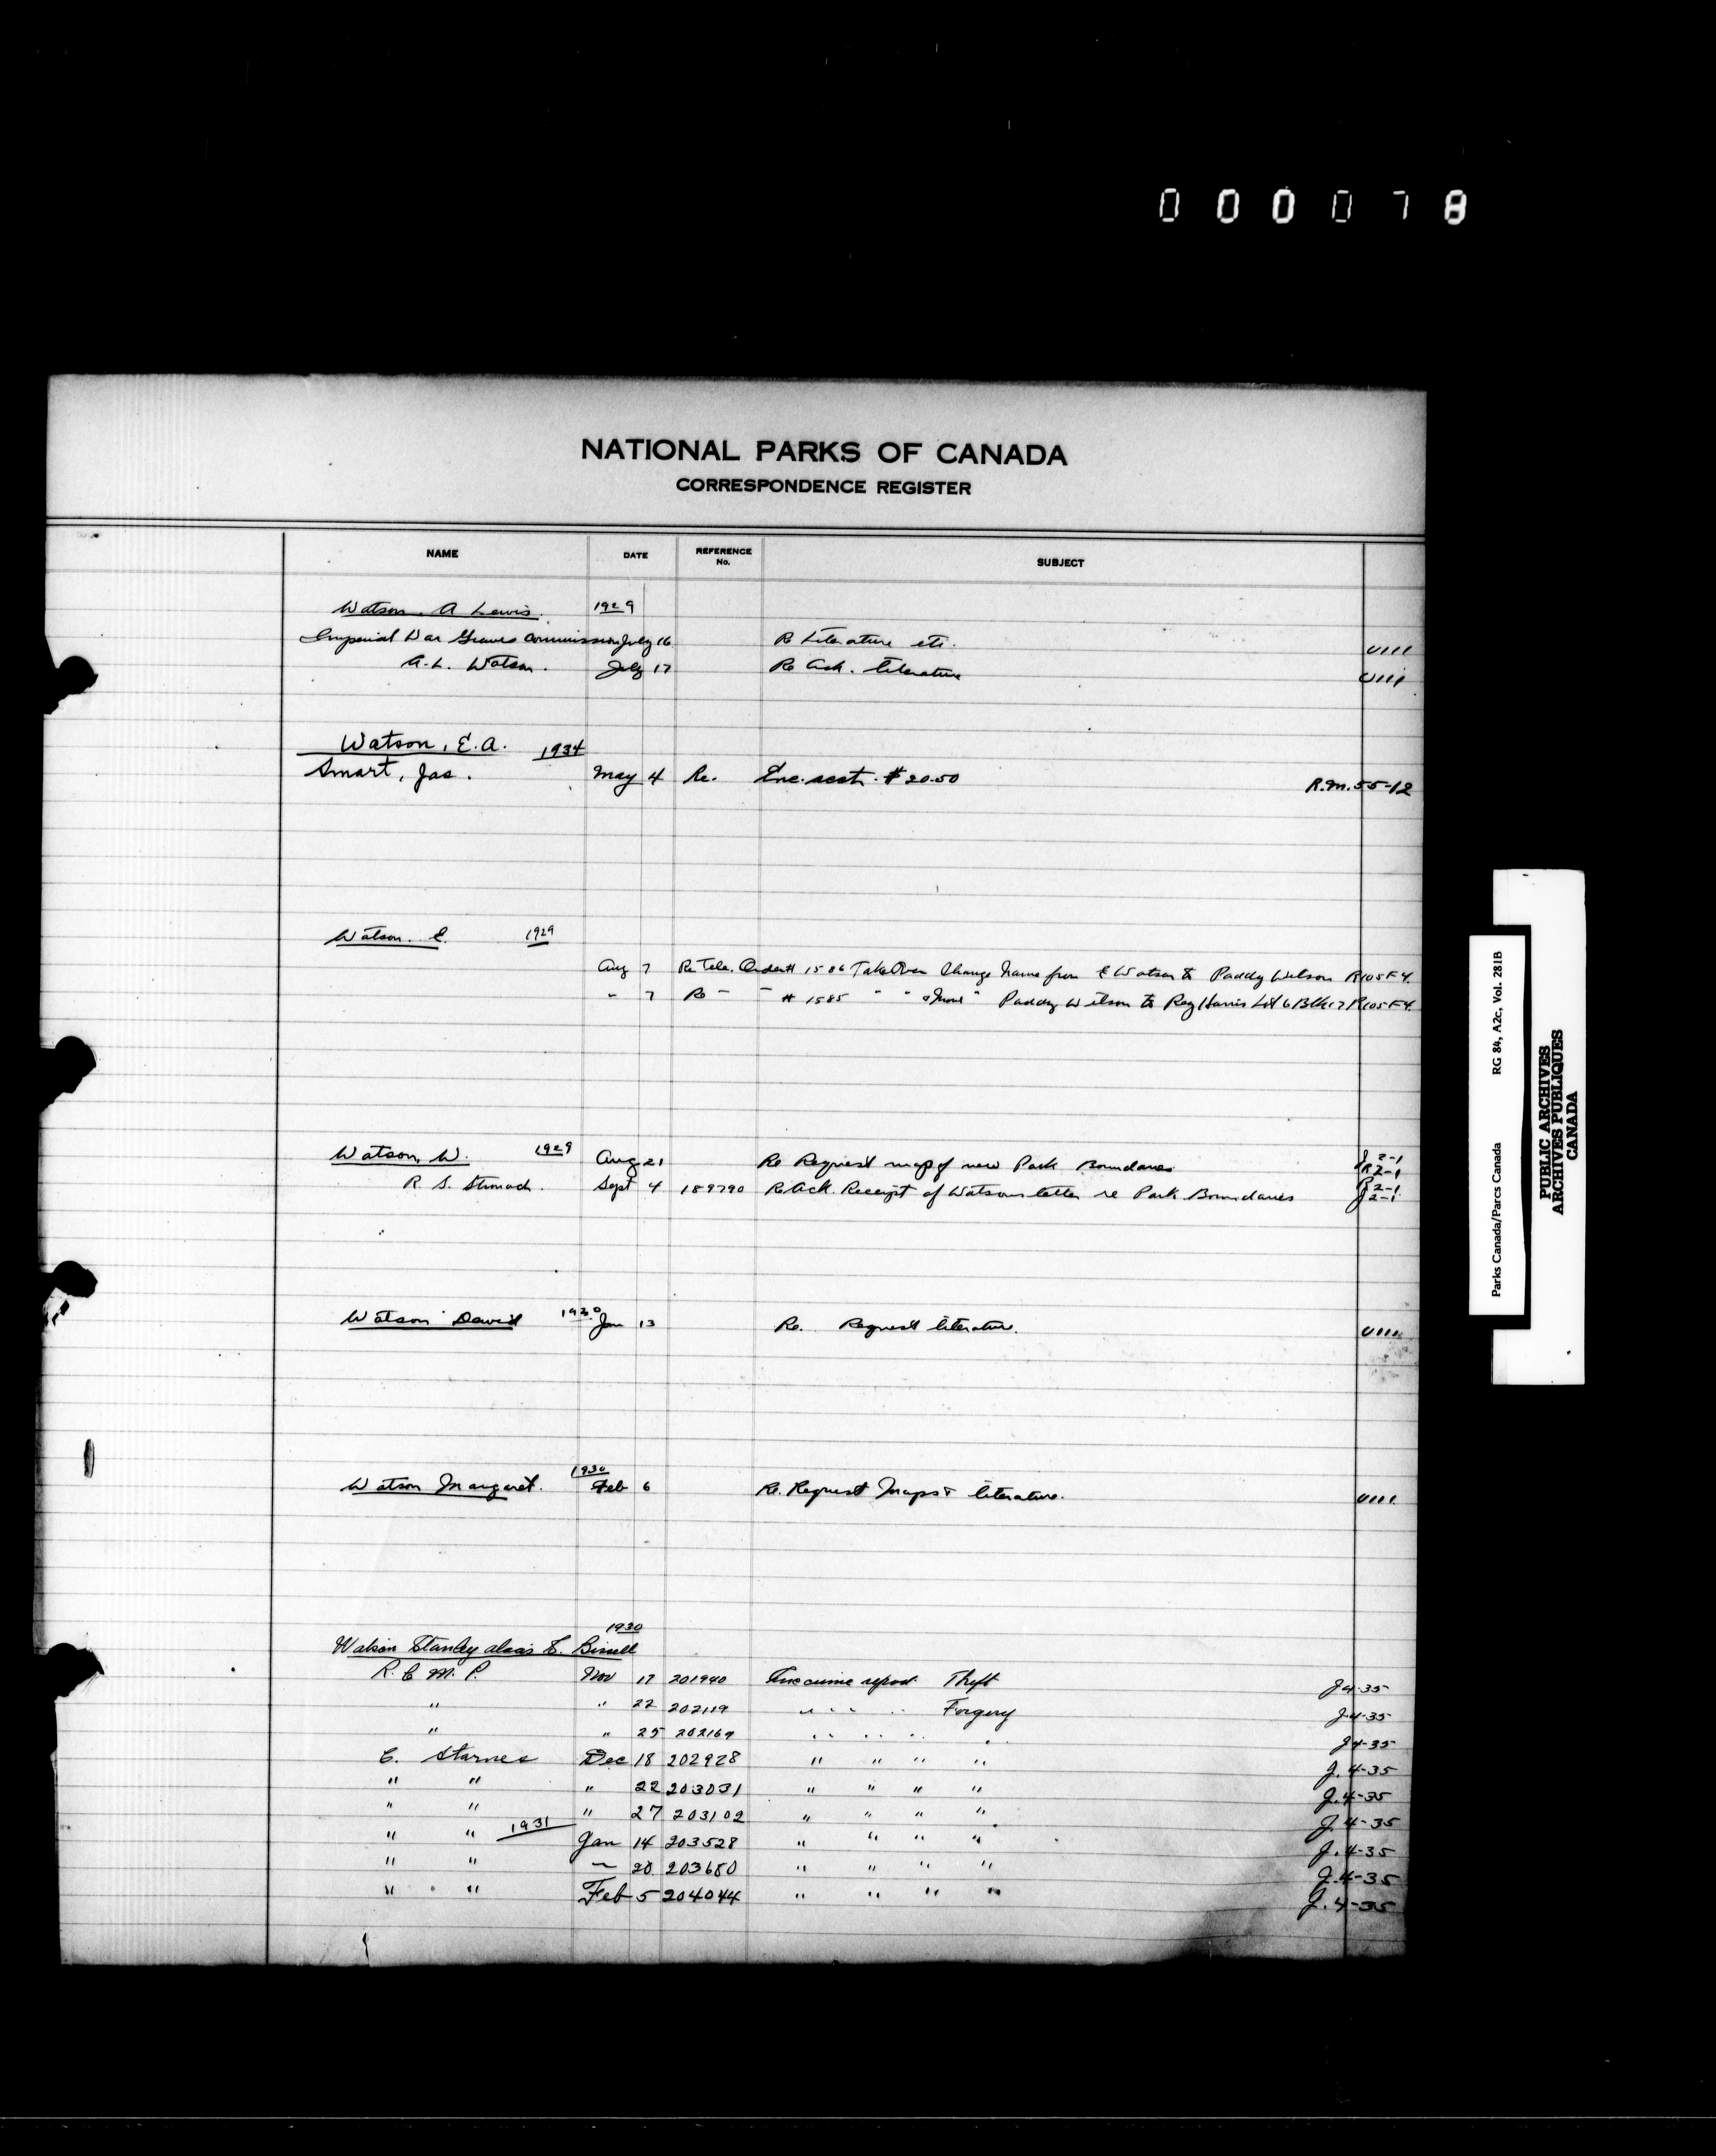 000078
NATIONAL PARKS OF CANADA
CORRESPONDENCE REGISTER
NAME DATE REFERENCE No. SUBJECT
Watson, A Lewis. 1929
Imperial War Graves Commission July 16 Re Literature etc. U111
A.L. Watson. July 17 Re Ack. literature U111
Watson, E.A. 1934
Smart, Jas. May 4 Re. Enc. acct. $20.50 R.M.55-12
Watson. E. 1929
Aug 7 Re Tele. Order # 1586 Take Over Change Name from E Watson to Paddy Wilson R105F4.
" 7 Re " " # 1585 " " " Paddy Wilson to Reg Harris Lot 6 Blk 17 R105F4.
Watson, W. 1929 Aug 21 Re Request map of new Park Boundaries J2-1 R2-1
R. S. Stronach. Sept 4 189790 Re Ack. Receipt of Watsons letter re Park Boundaries R2-1 J2-1
Watson David 1930 Jan 13 Re. Request literature. U111
Watson Margaret. 1930 Feb 6 Re. Request Maps & literature. U111
1930
Watson Stanley alias E. Birrell
R. C. M. P. Nov 17 201940 Enc crime report Theft J4-35
" " 22 202119 " " " Forgery J.4-35
" " 25 202169 " " " " J4-35
C. Starnes Dec 18 202928 " " " " J.4-35
" " " 22 203031 " " " " J.4-35
" " " 27 203102 " " " " J.4-35
" " 1931 Jan 14 203528 " " " " J.4-35
" " " 20 203680 " " " " J.4-35
" " Feb 5 204044 " " " " J.4-35
Parks Canada/Parcs Canada RG 84, A2c, Vol. 281B
PUBLIC ARCHIVES
ARCHIVES PUBLIQUES
CANADA